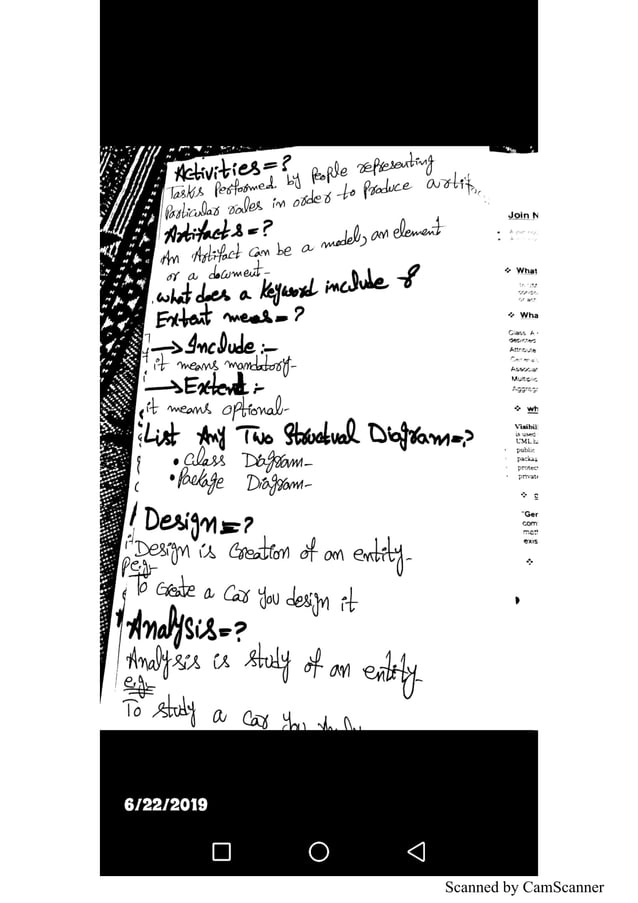 Activities=?
Tasks Performed by People representing
Particular roles in order to Produce
Artifacts=?
An Artifact can be a model, an element
or a document-
what does a keyword include &
Extent means=?
→Include:-
it means mandatory-
→Extend:-
it means optional-
List Any Two Structual Diagram=?
• Class Diagram-
• Package Diagram-
Design=?
Design is Creation of an entity-
e.g-
To Create a Car you design it
Analysis=?
Analysis is study of an entity-
e.g-
To study a Car you
Join N
❖ What
❖ Wha
Class A
depicted
Attribute
Associat
Multiplic
Aggrega
❖ wh
Visibil
is used
UML
public
packag
protect
private
"Ger
com
exis
6/22/2019
Scanned by CamScanner